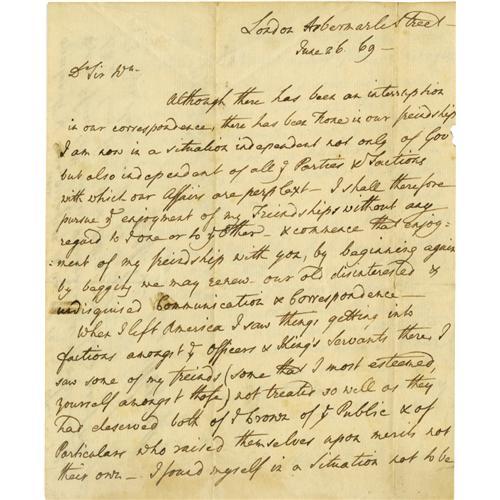 London Albermarle Street -
June 26. 69 -
Dr Sir Wm.
Although there has been an interruption
in our correspondence, there has been None in our freindship
I am now in a situation independent not only of Gov
but also independant of all ye Parties & Factions
with which our Affairs are perplext - I shall therefore
pursue ye enjoyment of my Freindships without any
regard to ye one or to ye Other - & commence that enjoy-
:ment of my freindship with you, by beginning again
by begging we may renew our old disinterested &
undisguised Communication & Correspondence -
When I left America I saw things getting into
factions amongst ye Officers & King's Servants there, I
saw some of my freinds (some that I most esteemed
yourself amongst those) not treated so well as they
had deserved both of ye Crown of ye Public & of
Particulars who raised themselves upon merits not
their own - I found myself in a Situation not to be